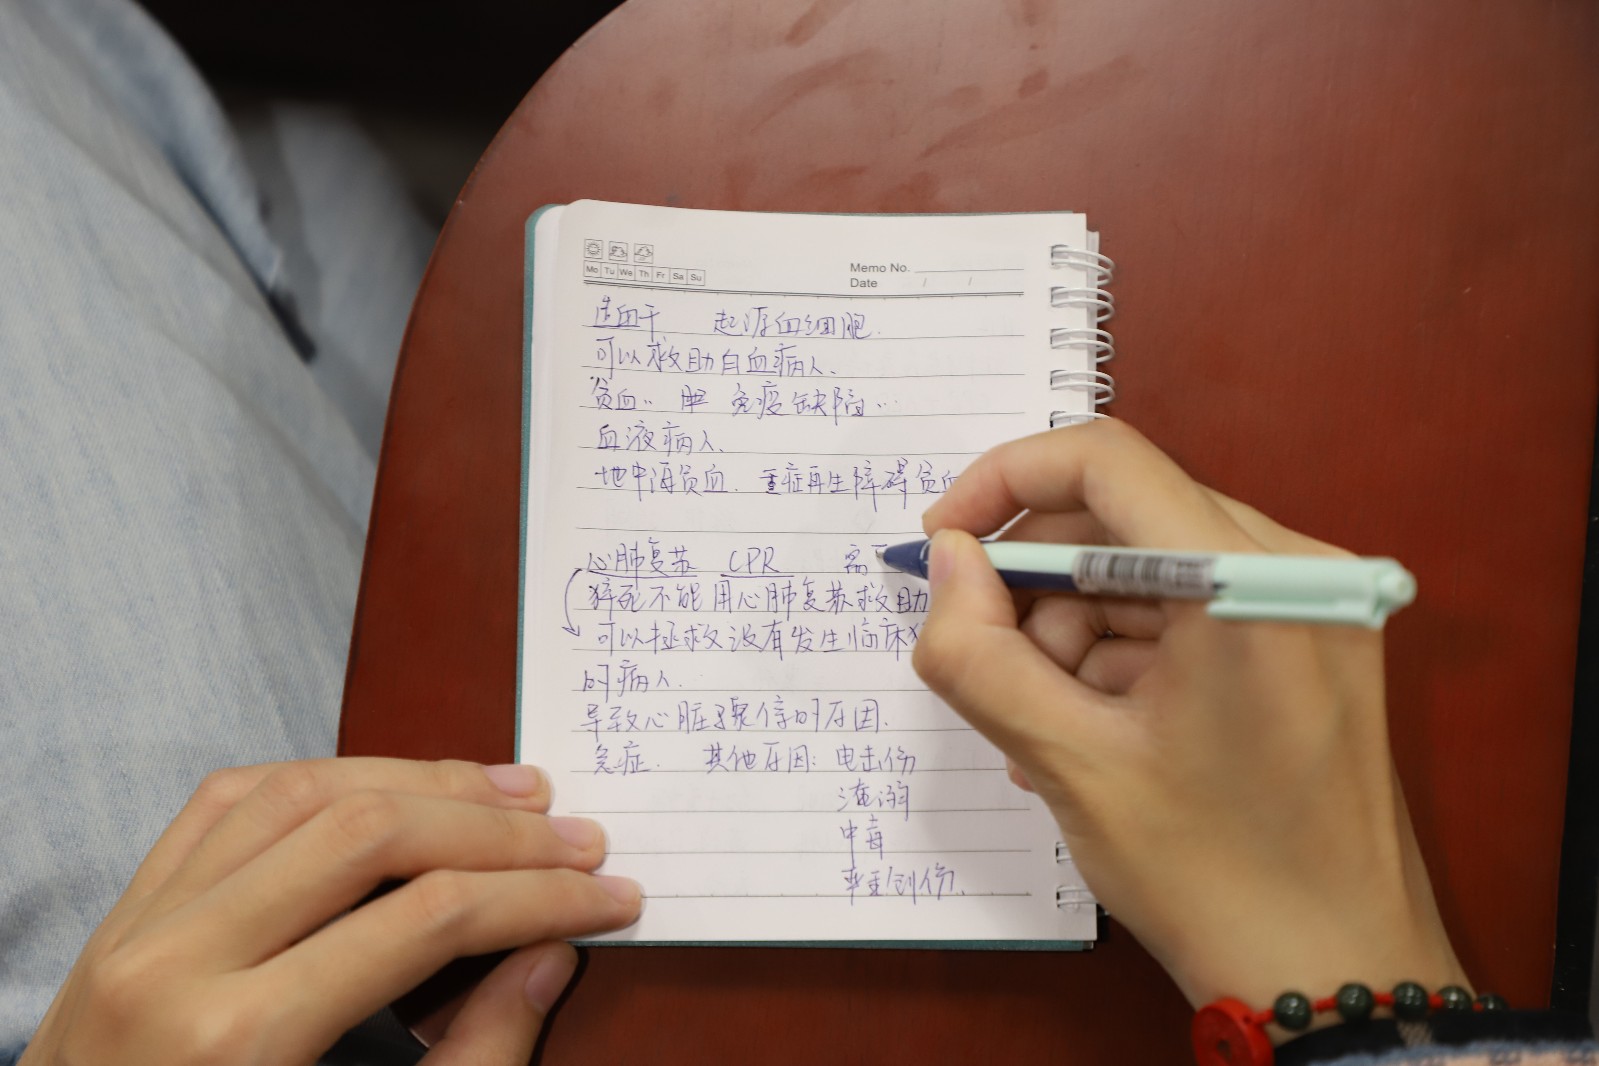 Mo Tu We Th Fr Sa Su
Memo No.
Date / /
造血干 起源血细胞.
可以救助白血病人.
贫血.. 免疫缺陷...
血液病人.
地中海贫血. 重症再生障碍贫血
心肺复苏 CPR 需
猝死不能用心肺复苏救助
可以拯救没有发生临床
的病人.
导致心脏骤停的原因.
急症. 其他原因: 电击伤
淹溺
中毒
严重创伤.